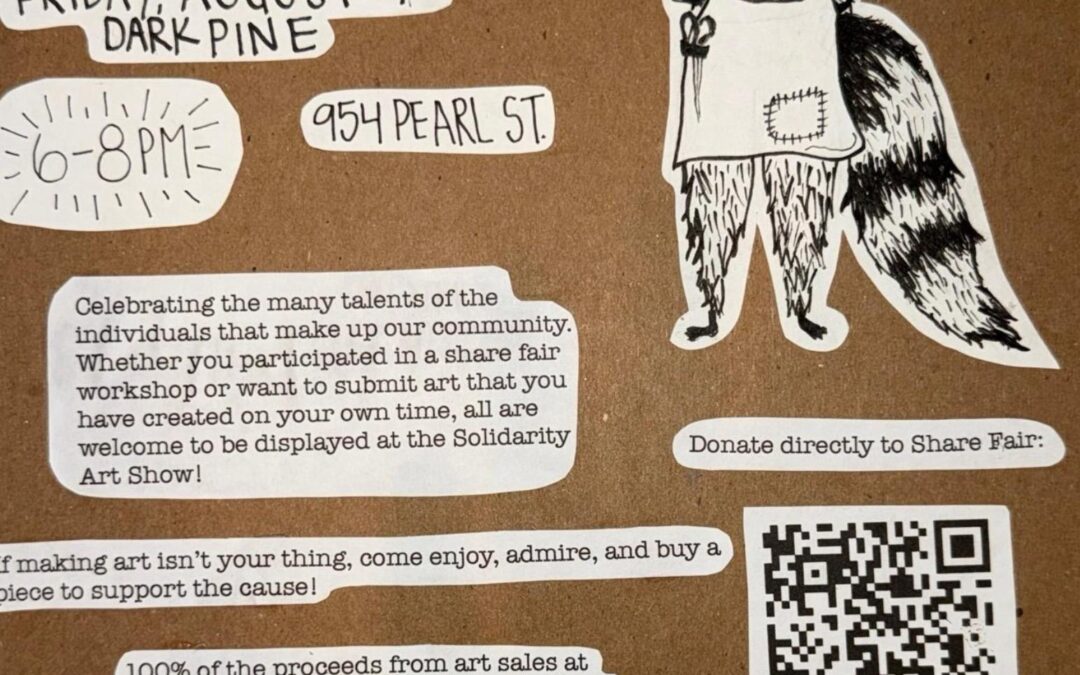 FRIDAY, AUGUST
DARK PINE
6-8PM
954 PEARL ST.
Celebrating the many talents of the
individuals that make up our community.
Whether you participated in a share fair
workshop or want to submit art that you
have created on your own time, all are
welcome to be displayed at the Solidarity
Art Show!
Donate directly to Share Fair:
f making art isn't your thing, come enjoy, admire, and buy a
piece to support the cause!
100% of the proceeds from art sales at